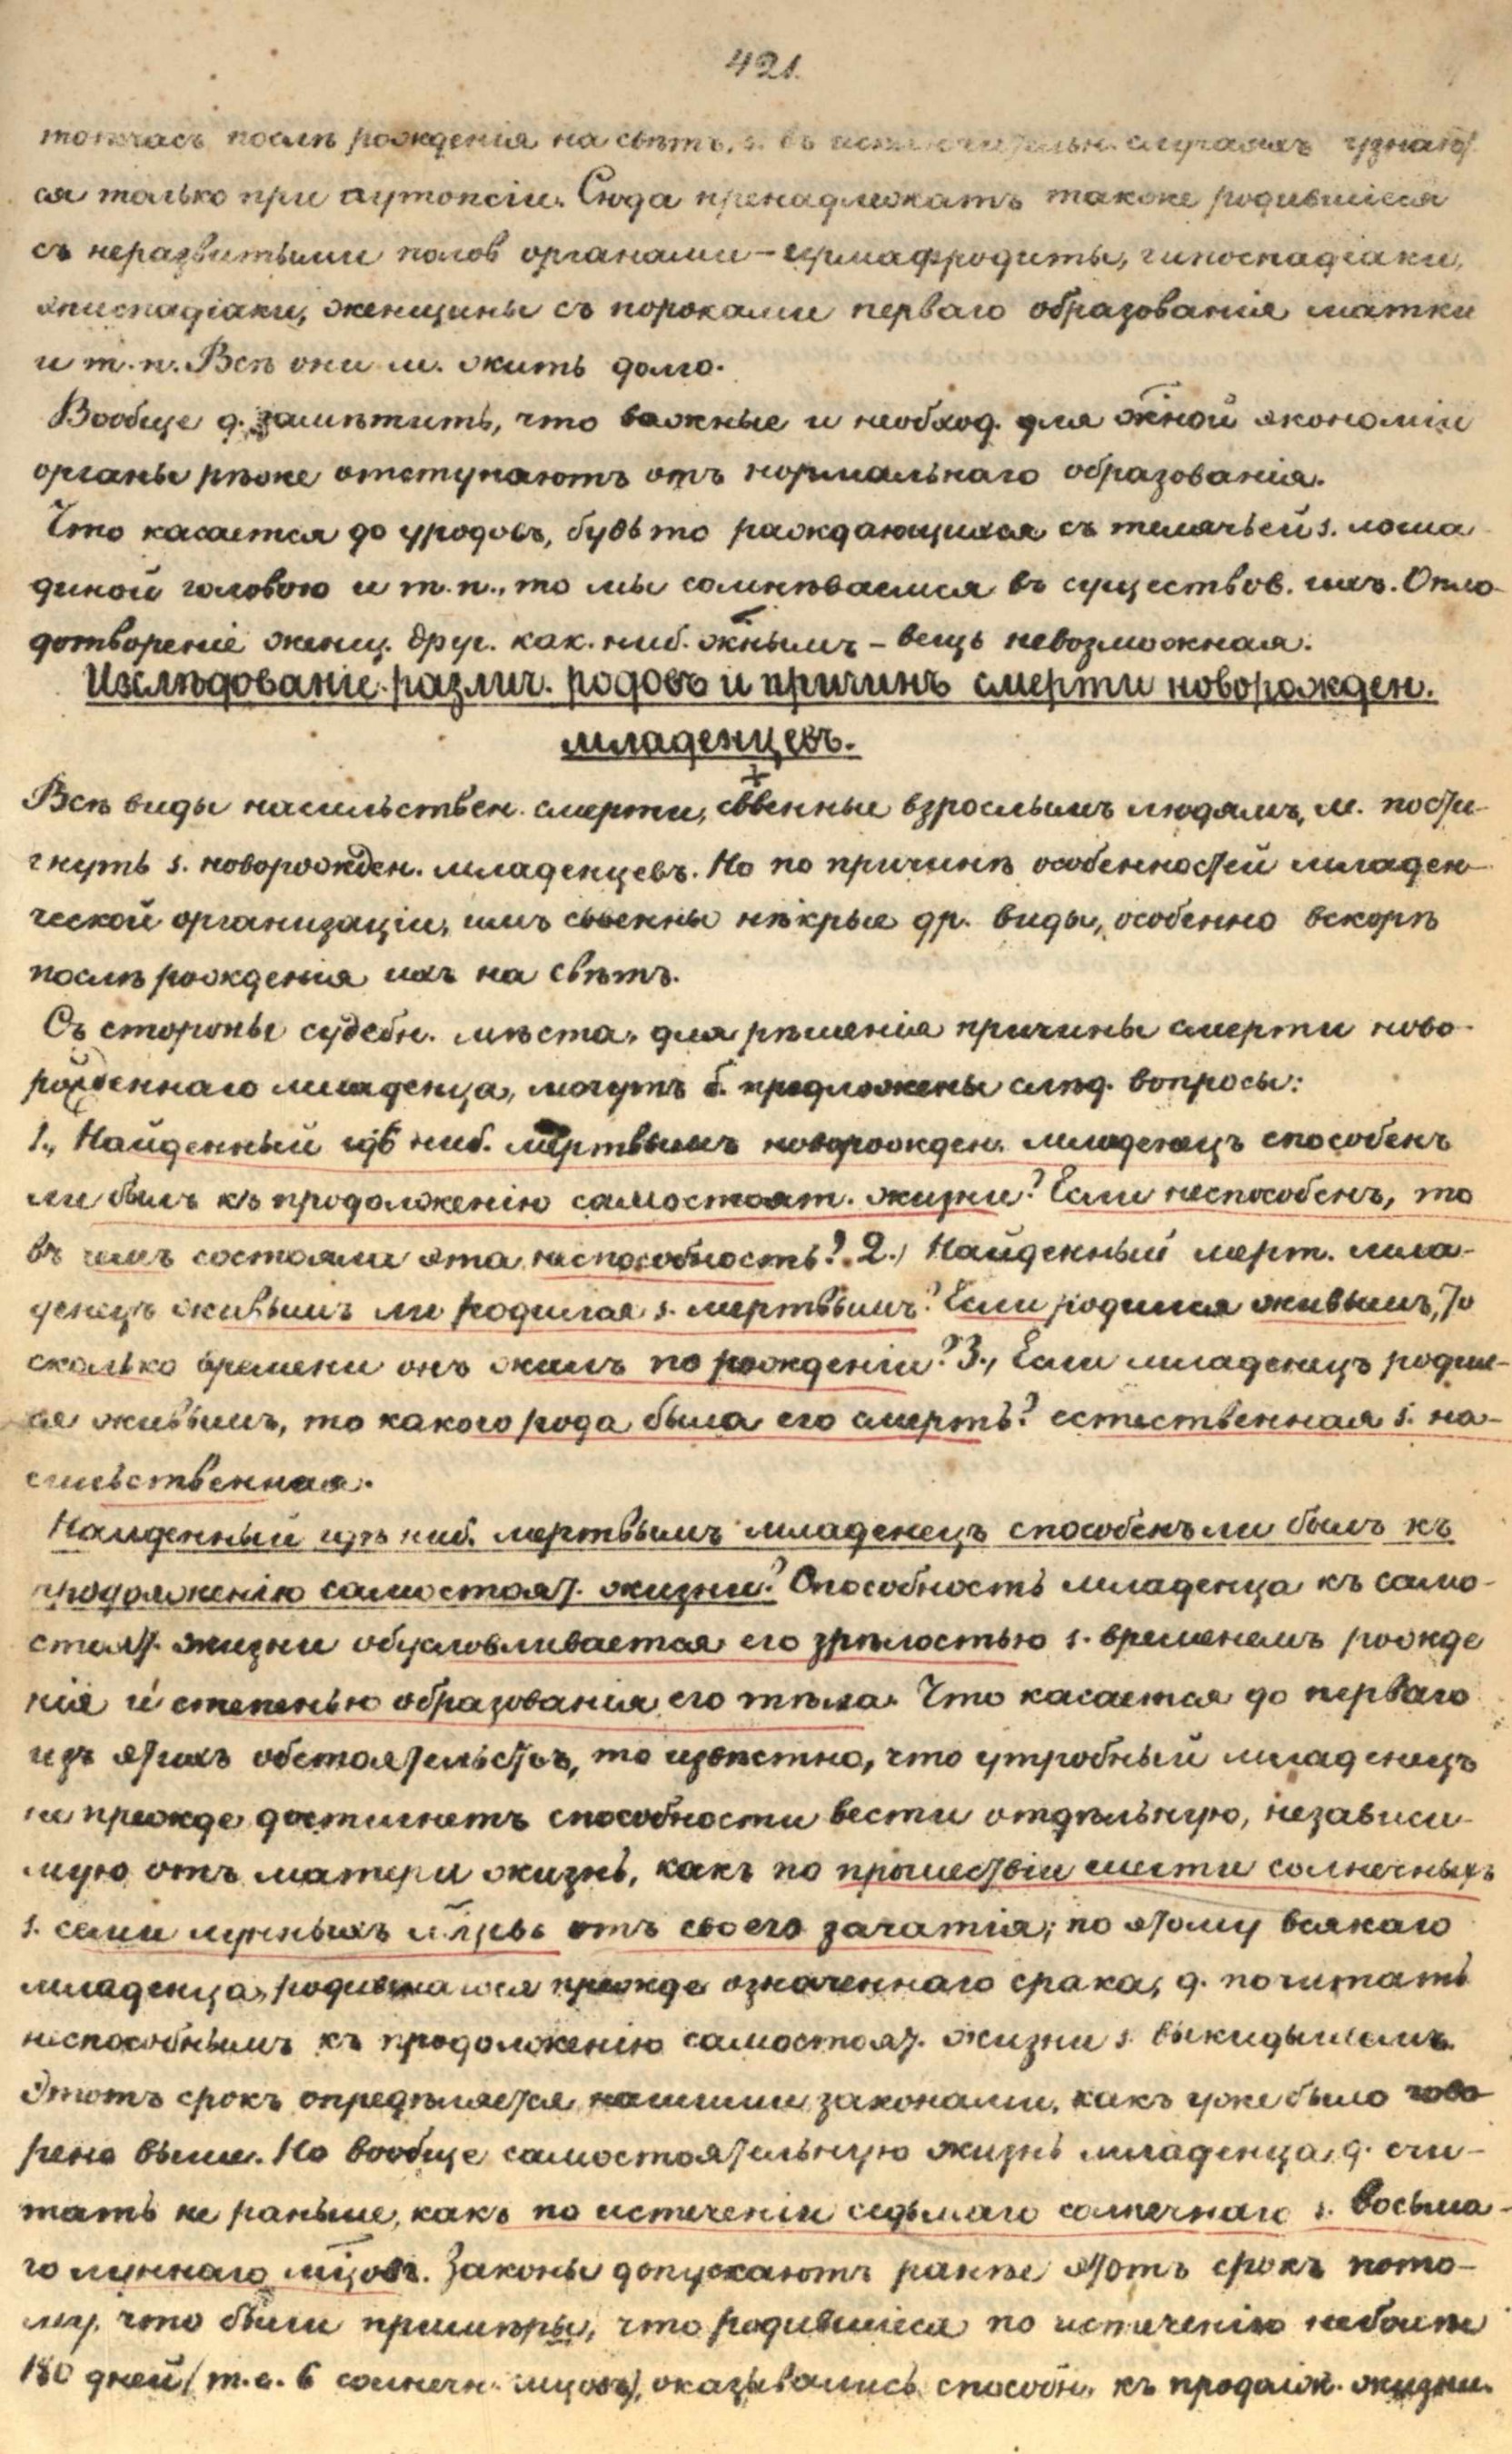 421.
тотчасъ послѣ рожденія на свѣтъ, s. въ исключительн. случаяхъ узнают
ся только при аутопсіи. Сюда пренадлежатъ также родившіеся
съ неразвитыми полов органами – гермафродиты, гипоспадіаки,
эписпадіаки, женщины съ пороками перваго образованія матки
и т. п. Всѣ они м. жить долго.
Вообще д. замѣтить, что важные и необход. для жной экономіи
органы рѣже отступаютъ отъ нормальнаго образованія.
Что касается до уродовъ, будьто раждающихся съ телячьей s. лоша
диной головою и т. п., то мы сомнѣваемся въ существов. ихъ. Опло-
дотвореніе женщ. друг. как. ниб. жнымъ – вещь невозможная.
Изслѣдованіе различ. родовъ и причинъ смерти новорожден.
младенцевъ.
Всѣ виды насильствен. смерти, сввенные взрослымъ людямъ, м. пости-
гнуть s. новорожден. младенцевъ. Но по причинѣ особенностей младен-
ческой организаціи, имъ свенны нѣкрые др. виды, особенно вскорѣ
послѣ рожденія ихъ на свѣтъ.
Съ стороны судебн. мѣста, для рѣшенія причины смерти ново-
рожденнаго младенца, могутъ б. предложены слѣд. вопросы:
1., Найденный гдѣ ниб. мертвымъ новорожден. младенецъ способенъ
ли былъ къ продолженію самостоят. жизни? Если неспособенъ, то
въ чемъ состояли эта неспособность? 2.) Найденный мерт. мла-
денецъ живымъ ли родился s. мертвымъ? Если родился живымъ, то
сколько времени онъ жилъ по рожденіи? 3., Если младенецъ родил-
ся живымъ, то какого рода была его смерть? естественная s. на-
сильственная.
Найденный гдѣ ниб. мертвымъ младенецъ способенъ ли былъ къ
продолженію самостоят. жизни? Способность младенца къ само-
стоят. жизни обусловливается его зрѣлостью s. временемъ рожде
нія и степенью образованія его тѣла. Что касается до перваго
изъ этихъ обстоятельствъ, то извѣстно, что утробный младенецъ
не прежде достигнетъ способности вести отдѣльную, независи-
мую отъ матери жизнь, какъ по прошествіи шести солнечныхъ
s. семи лунныхъ мцевъ отъ своего зачатія; по этому всякаго
младенца, родившагося прежде означеннаго срока, д. почитать
неспособнымъ къ продолженію самостоят. жизни s. выкидышемъ.
Этотъ срокъ опредѣляется нашими законами, какъ уже было гово-
рено выше. Но вообще самостоятельную жизнь младенца, д. счи-
тать не раньше, какъ по истеченіи седьмаго солнечнаго s. восьма-
го луннаго мцовъ. Законы допускаютъ ранѣе этотъ срокъ пото-
му, что были примѣры, что родившіеся по истеченію неболѣе
180 дней (т. е. 6 солнечн. мцовъ), оказывались способн. къ продолж. жизни.